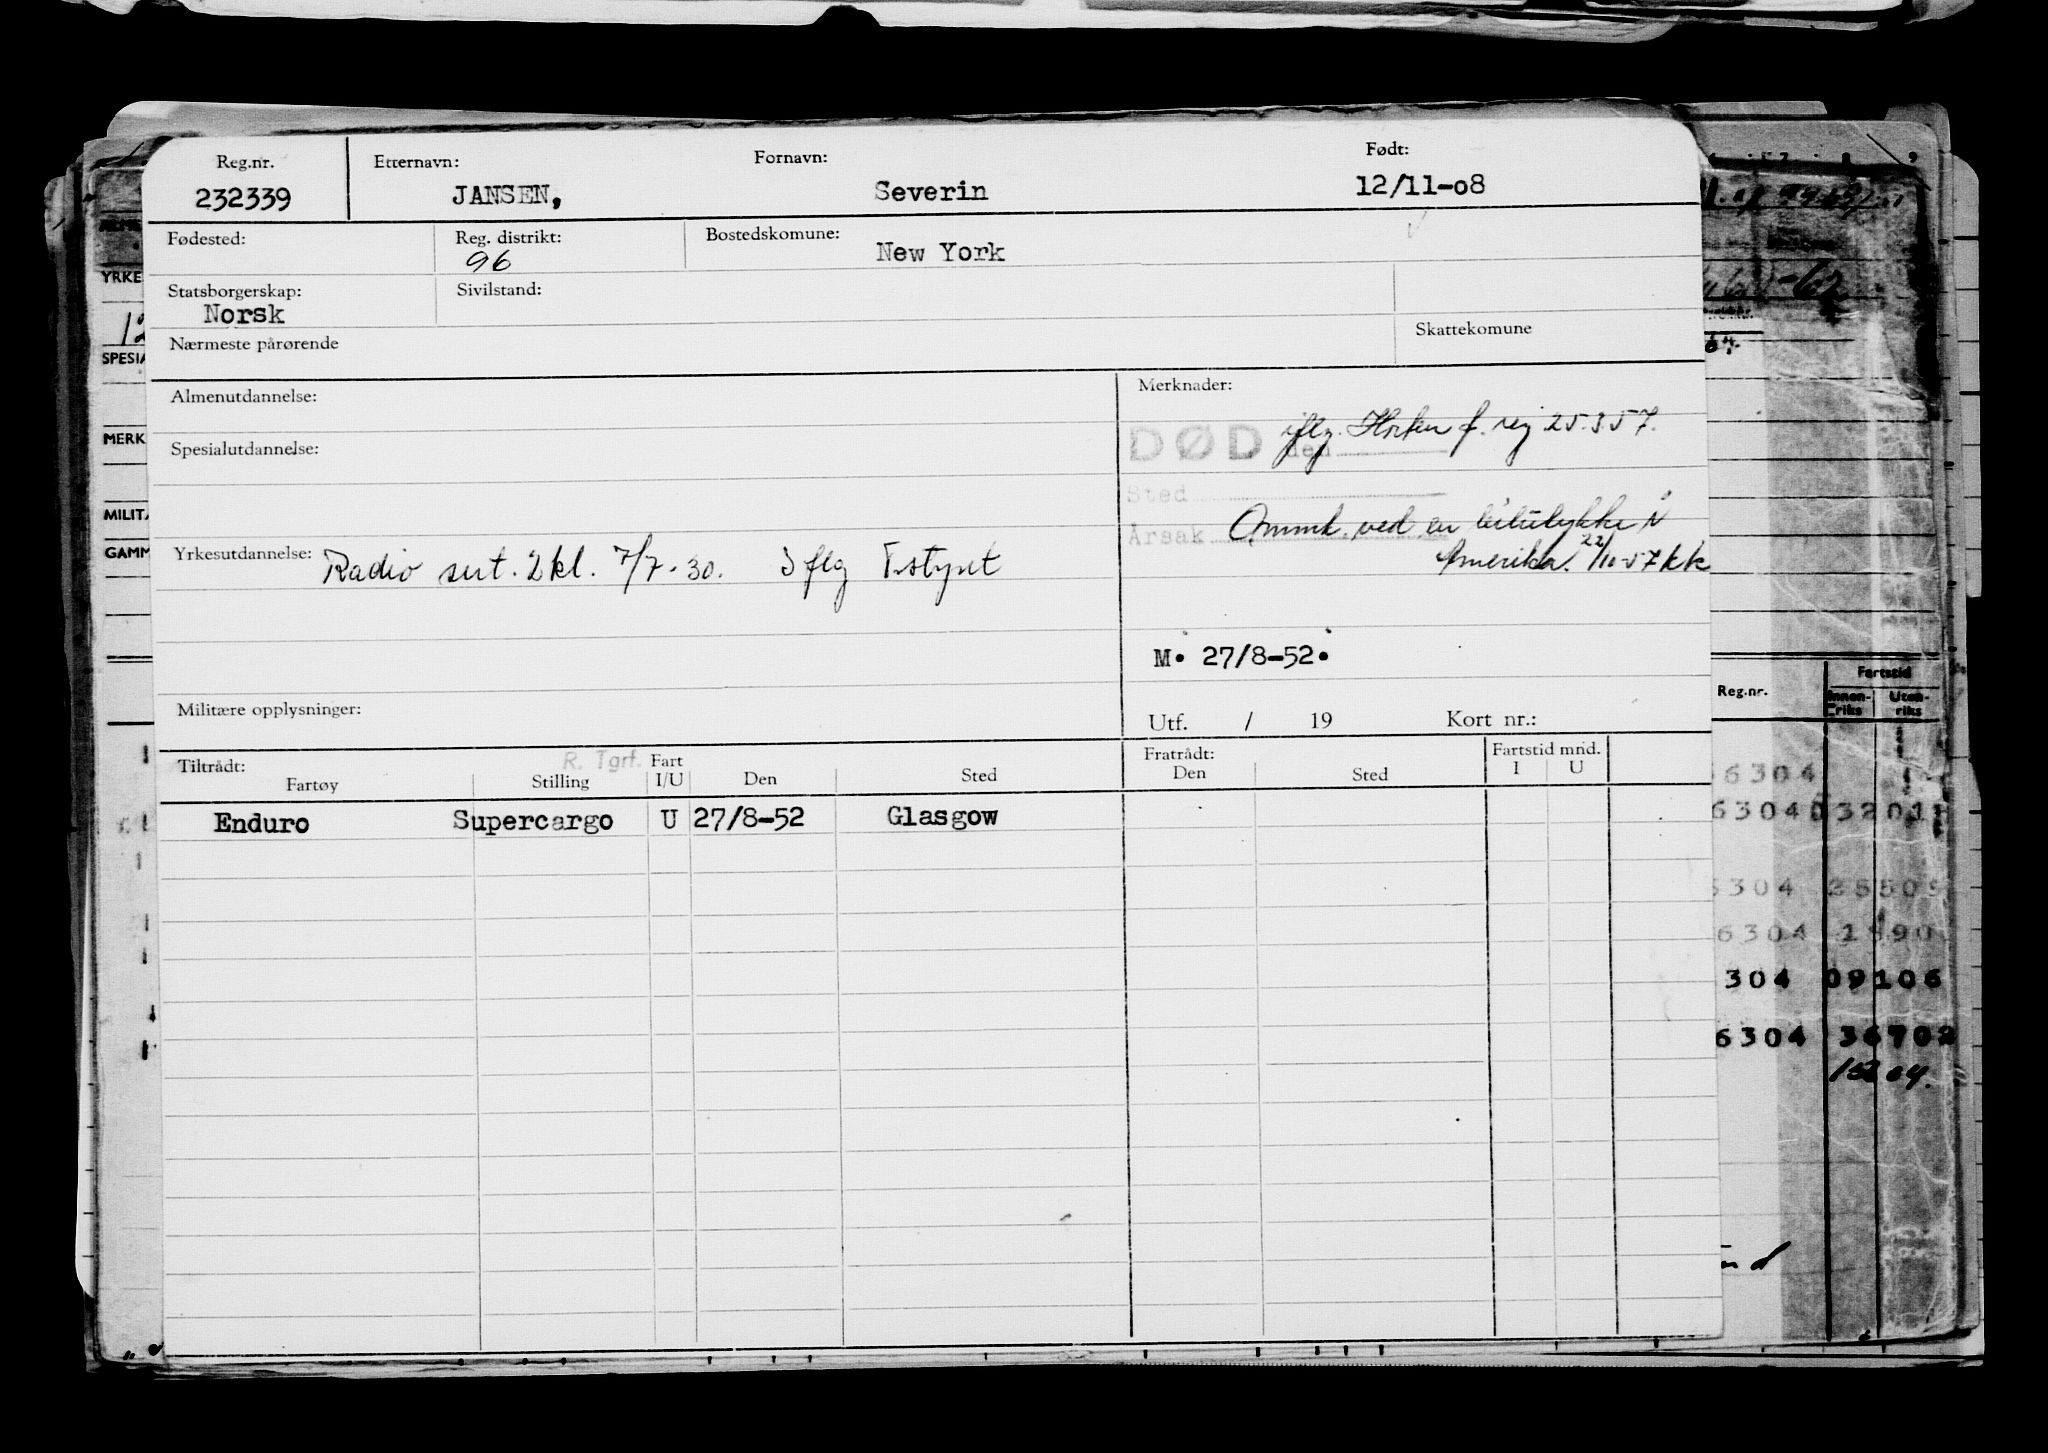 Reg.nr. Etternavn: Fornavn: Født:
232339 JANSEN, Severin 12/11-08
Fødested: Reg. distrikt: Bostedskomune:
96 New York
Statsborgerskap: Sivilstand:
Norsk
Nærmeste pårørende Skattekomune
Almenutdannelse: Merknader:
iflg. f. reg 25.3.57.
DØD den
Spesialutdannelse:
Sted
Årsak Ommk. ved en bilulykke i
Yrkesutdannelse: Radio sert. 2 kl. 7/7-30. Iflg T.styret
Amerika. 22/10-57 kk
M. 27/8-52.
Militære opplysninger: Utf. / 19 Kort nr.:
Tiltrådt: R. Tgrf. Fart Fratrådt: Fartstid mnd.
Fartøy Stilling I/U Den Sted Den Sted I U
Enduro Supercargo U 27/8-52 Glasgow
YRKE
12
SPESIA
MERK
MILITÆ
GAMM
Fartstid
Reg.nr. Innen-riks Uten-riks
6304
6304
6304
304 09106
6304 36702